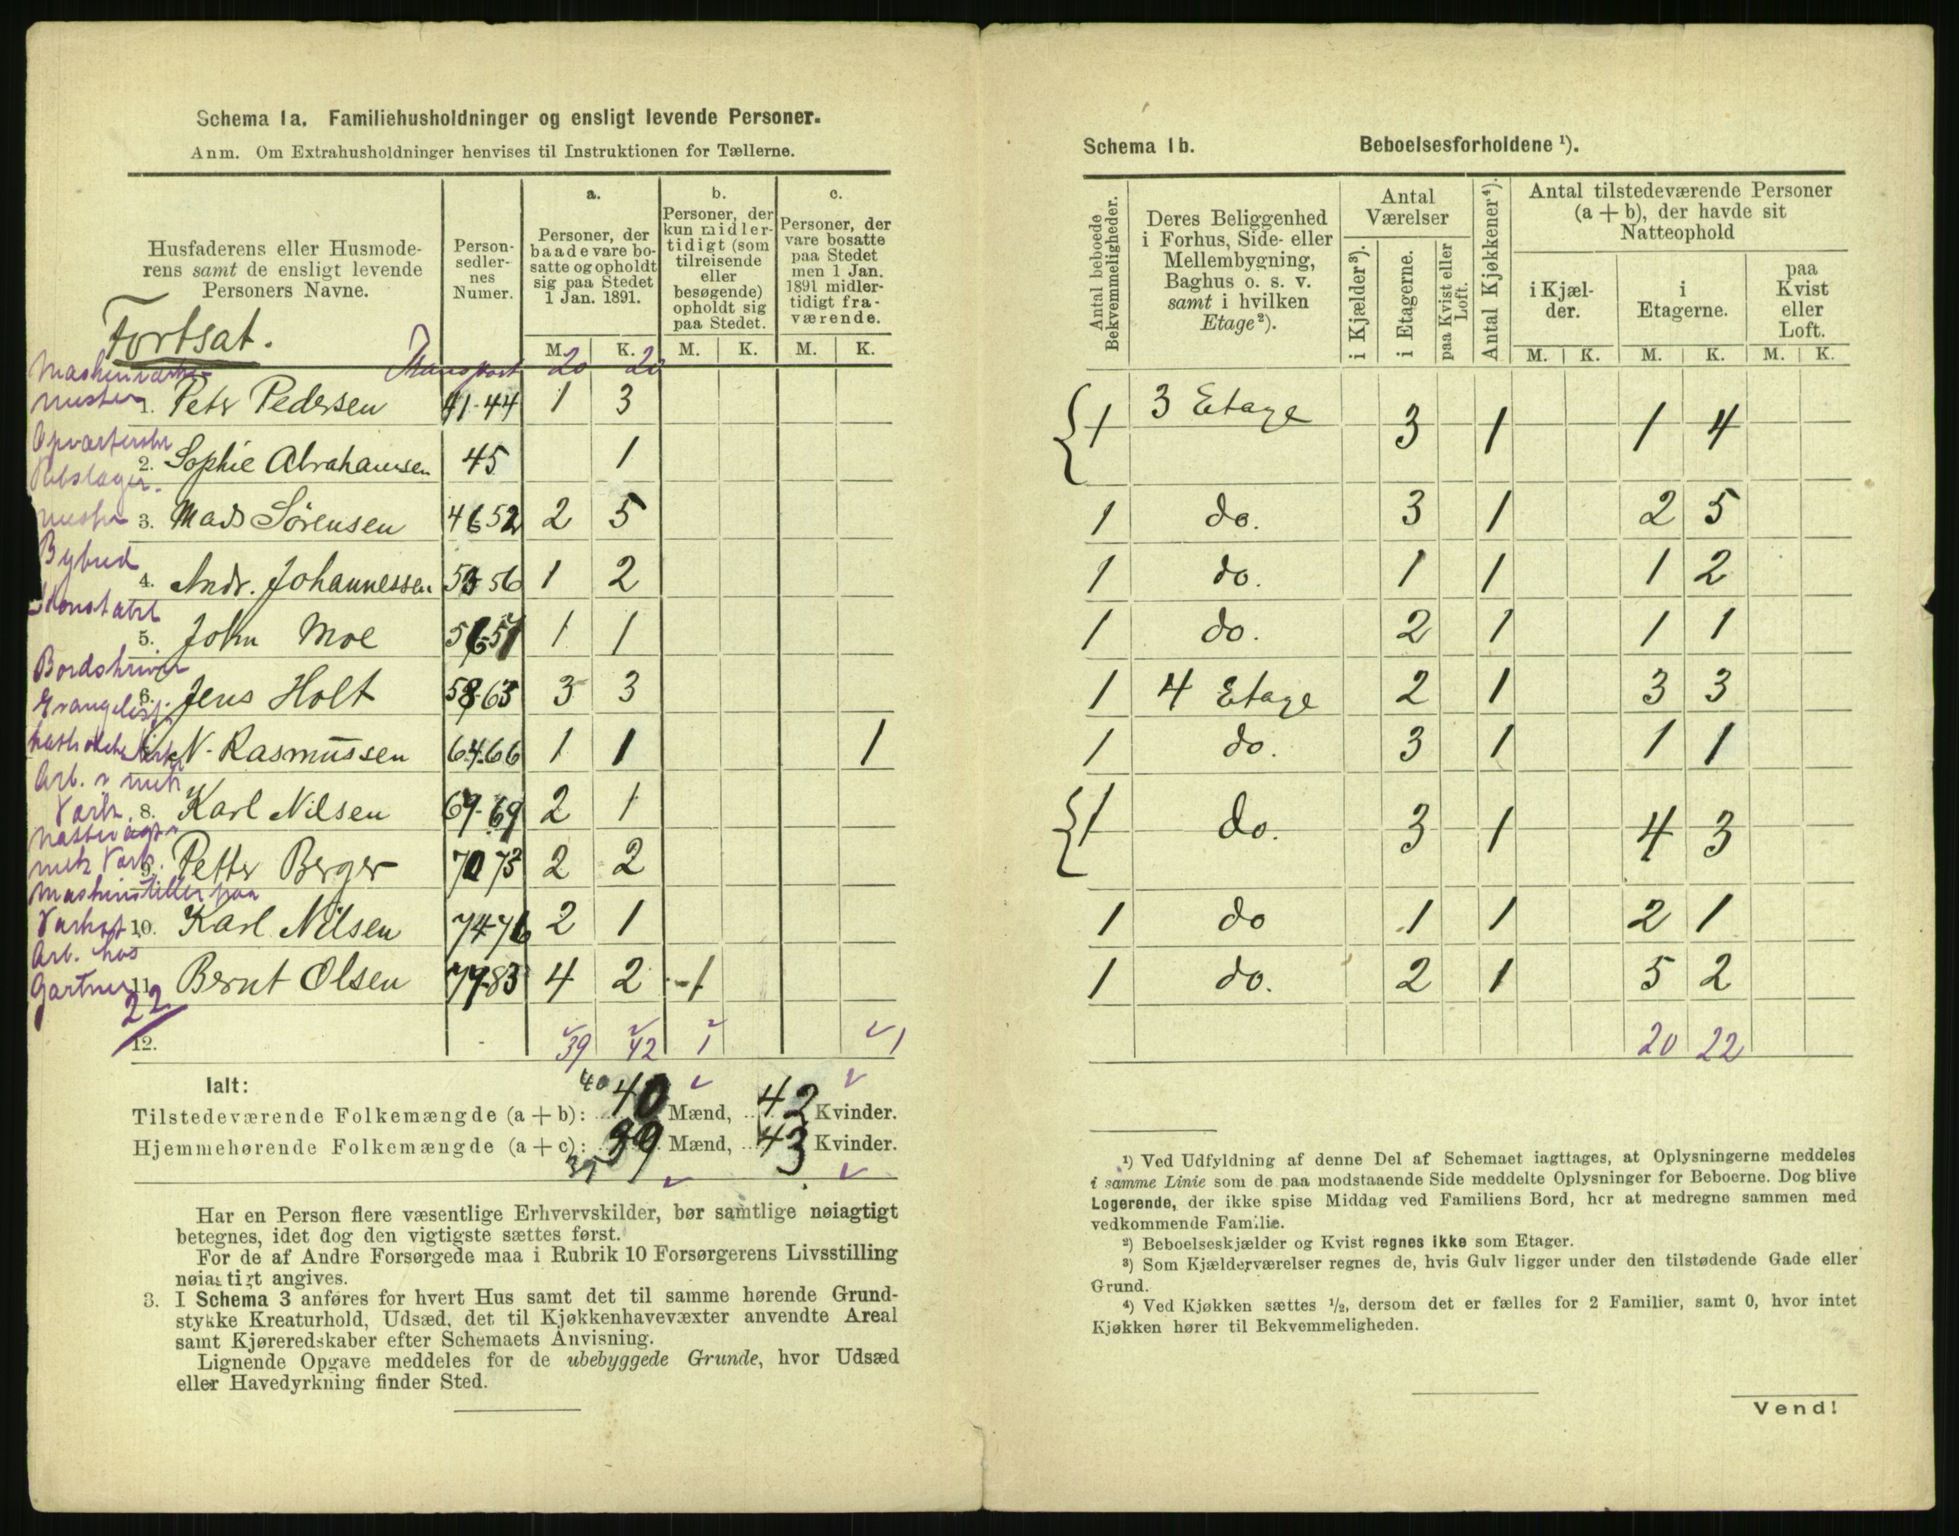 Schema 1a. Familiehusholdninger og ensligt levende Personer.
Anm. Om Extrahusholdninger henvises til Instruktionen for Tællerne.
Husfaderens eller Husmoderens samt de ensligt levende Personers Navne.
Person-sedlernes Numer.
a. Personer, der baade vare bosatte og opholdt sig paa Stedet 1 Jan. 1891.
b. Personer, der kun midlertidigt (som tilreisende eller besøgende) opholdt sig paa Stedet.
c. Personer, der vare bosatte paa Stedet men 1 Jan. 1891 midlertidigt fraværende.
M. K. M. K. M. K.
Fortsat.
Transport 20 20
1. Petr Pedersen 41-44 1 3
Opvarterske
2. Sophie Abrahamsen 45 1
Rebslager
mester 3. Mads Sørensen 46 52 2 5
Bybud
4. Andr. Johannessen 53 56 1 2
Konstabel
5. John Moe 56 57 1 1
6. Jens Holt 58 63 3 3
N. Rasmussen 64-66 1 1 1
8. Karl Nilsen 67-69 2 1
9. Petter Berger 70 73 2 2
10. Karl Nilsen 74-76 2 1
Arb. hos
Gartner 11. Bernt Olsen 77-83 4 2 1
22
12. 39 42 1 1
Ialt:
Tilstedeværende Folkemængde (a + b): 40 40 Mænd, 42 Kvinder.
Hjemmehørende Folkemængde (a + c): 39 Mænd, 43 Kvinder.
39
Har en Person flere væsentlige Erhvervskilder, bør samtlige nøiagtigt
betegnes, idet dog den vigtigste sættes først.
For de af Andre Forsørgede maa i Rubrik 10 Forsørgerens Livsstilling
nøiagtigt angives.
3. I Schema 3 anføres for hvert Hus samt det til samme hørende Grund-
stykke Kreaturhold, Udsæd, det til Kjøkkenhavevæxter anvendte Areal
samt Kjøreredskaber efter Schemaets Anvisning.
Lignende Opgave meddeles for de ubebyggede Grunde, hvor Udsæd
eller Havedyrkning finder Sted.
Schema 1b. Beboelsesforholdene ¹).
Antal beboede Bekvemmeligheder.
Deres Beliggenhed i Forhus, Side- eller Mellembygning, Baghus o. s. v. samt i hvilken Etage²).
Antal Værelser
i Kjælder³).
i Etagerne.
paa Kvist eller Loft.
Antal Kjøkkener⁴).
Antal tilstedeværende Personer (a + b), der havde sit Natteophold
i Kjælder.
i Etagerne.
paa Kvist eller Loft.
M. K. M. K. M. K.
1 3 Etage 3 1 1 4
1 do. 3 1 2 5
1 do. 1 1 1 2
1 do. 2 1 1 1
1 4 Etage 2 1 3 3
1 do. 3 1 1 1
1 do. 3 1 4 3
1 do 1 1 2 1
1 do. 2 1 5 2
20 22
¹) Ved Udfyldning af denne Del af Schemaet iagttages, at Oplysningerne meddeles
i samme Linie som de paa modstaaende Side meddelte Oplysninger for Beboerne. Dog blive
Logerende, der ikke spise Middag ved Familiens Bord, her at medregne sammen med
vedkommende Familie.
²) Beboelseskjælder og Kvist regnes ikke som Etager.
³) Som Kjælderværelser regnes de, hvis Gulv ligger under den tilstødende Gade eller
Grund.
⁴) Ved Kjøkken sættes ½, dersom det er fælles for 2 Familier, samt 0, hvor intet
Kjøkken hører til Bekvemmeligheden.
Vend!